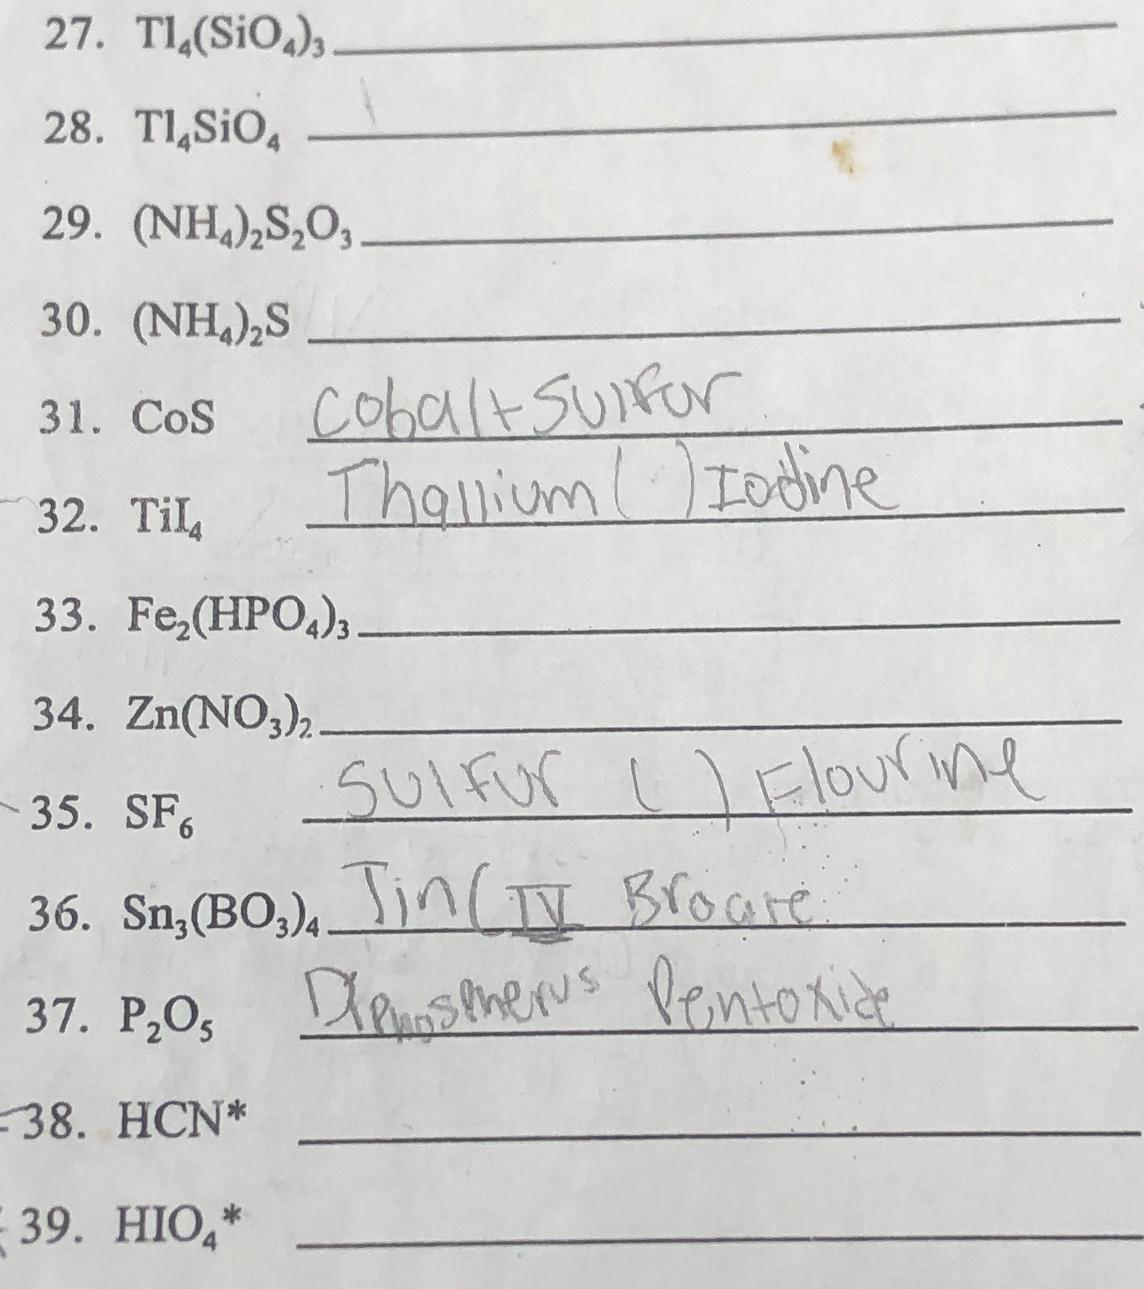 27. Tl₄(SiO₄)₃
28. Tl₄SiO₄
29. (NH₄)₂S₂O₃
30. (NH₄)₂S
31. CoS Cobalt Sulfur
32. TiI₄ Thallium ( ) Iodine
33. Fe₂(HPO₄)₃
34. Zn(NO₃)₂
35. SF₆ Sulfur ( ) Flourine
36. Sn₃(BO₃)₄ Tin (IV Broate
37. P₂O₅ Pentoxide
38. HCN*
39. HIO₄*